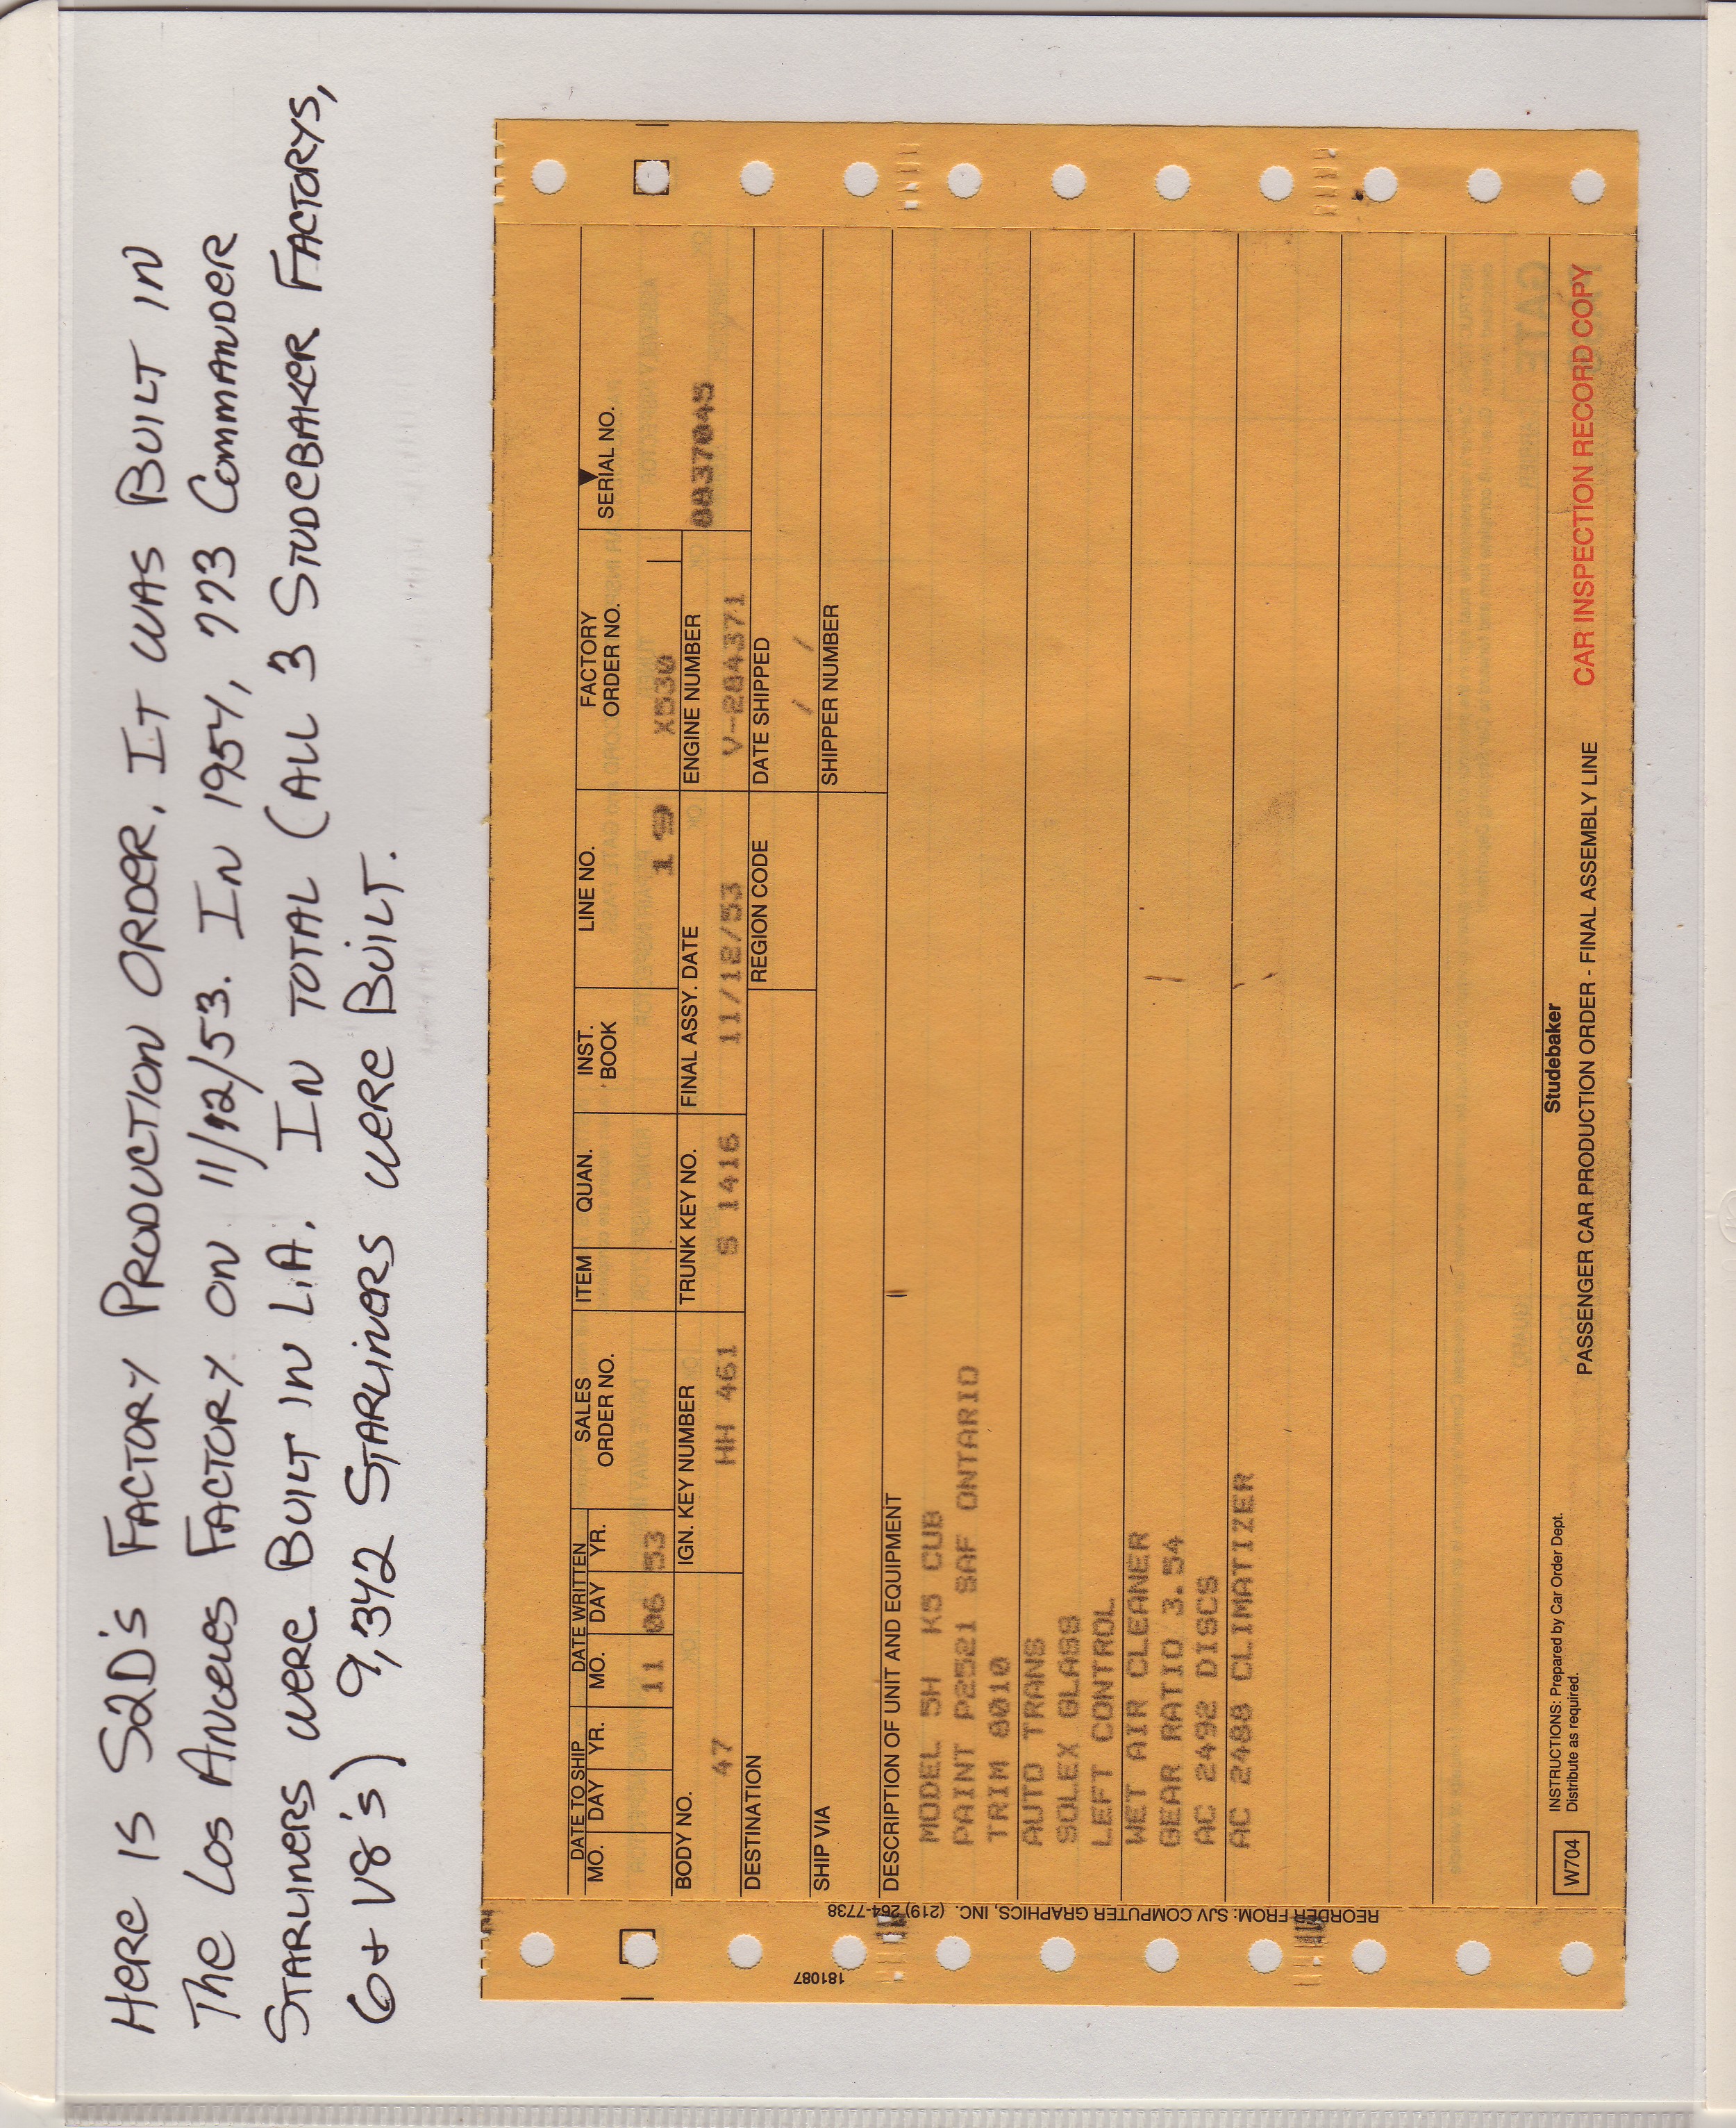 Here is S2D's Factory Production Order. It was Built in
The Los Angeles Factory on 11/12/53. In 1954, 773 Commander
Starliners were Built in L.A. In total (All 3 Studebaker Factorys,
6+V8's) 9,342 Starliners were Built.
DATE TO SHIP DATE WRITTEN SALES ORDER NO. ITEM QUAN. INST. BOOK LINE NO. FACTORY ORDER NO. SERIAL NO.
MO. DAY YR. MO. DAY YR.
11 06 53 1 9 X530
BODY NO. IGN. KEY NUMBER TRUNK KEY NO. FINAL ASSY. DATE ENGINE NUMBER 8837045
47 HH 461 S 1416 11/12/53 V-284371
DESTINATION REGION CODE DATE SHIPPED
/ /
SHIP VIA SHIPPER NUMBER
DESCRIPTION OF UNIT AND EQUIPMENT
MODEL 5H K5 CUB
PAINT P2521 SAF ONTARIO
TRIM 8010
AUTO TRANS
SOLEX GLASS
LEFT CONTROL
WET AIR CLEANER
GEAR RATIO 3.54
AC 2492 DISCS
AC 2488 CLIMATIZER
Studebaker
W704 INSTRUCTIONS: Prepared by Car Order Dept.
Distribute as required.
PASSENGER CAR PRODUCTION ORDER - FINAL ASSEMBLY LINE CAR INSPECTION RECORD COPY
REORDER FROM: SJV COMPUTER GRAPHICS, INC. (219) 264-7738
181087